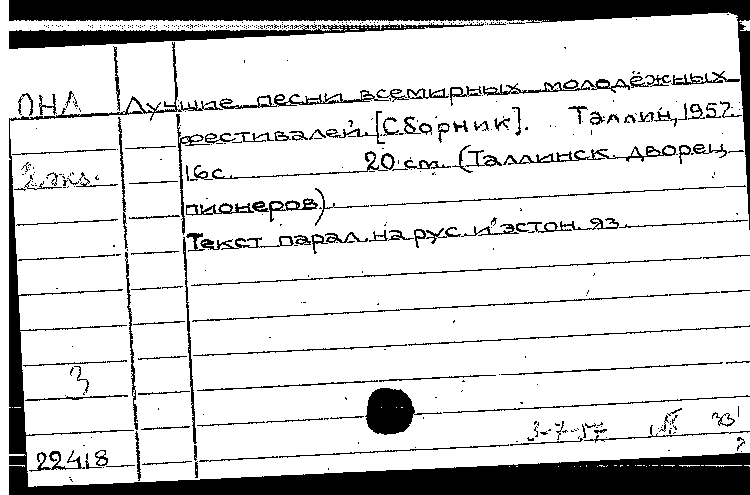 ОНЛ Лучшие песни всемирных молодёжных
фестивалей. [Сборник]. Таллин, 1957.
2 экз. 16 с. 20 см. (Таллинск. дворец
пионеров).
Текст парал. на рус. и эстон. яз.
3
3-7-57
22418